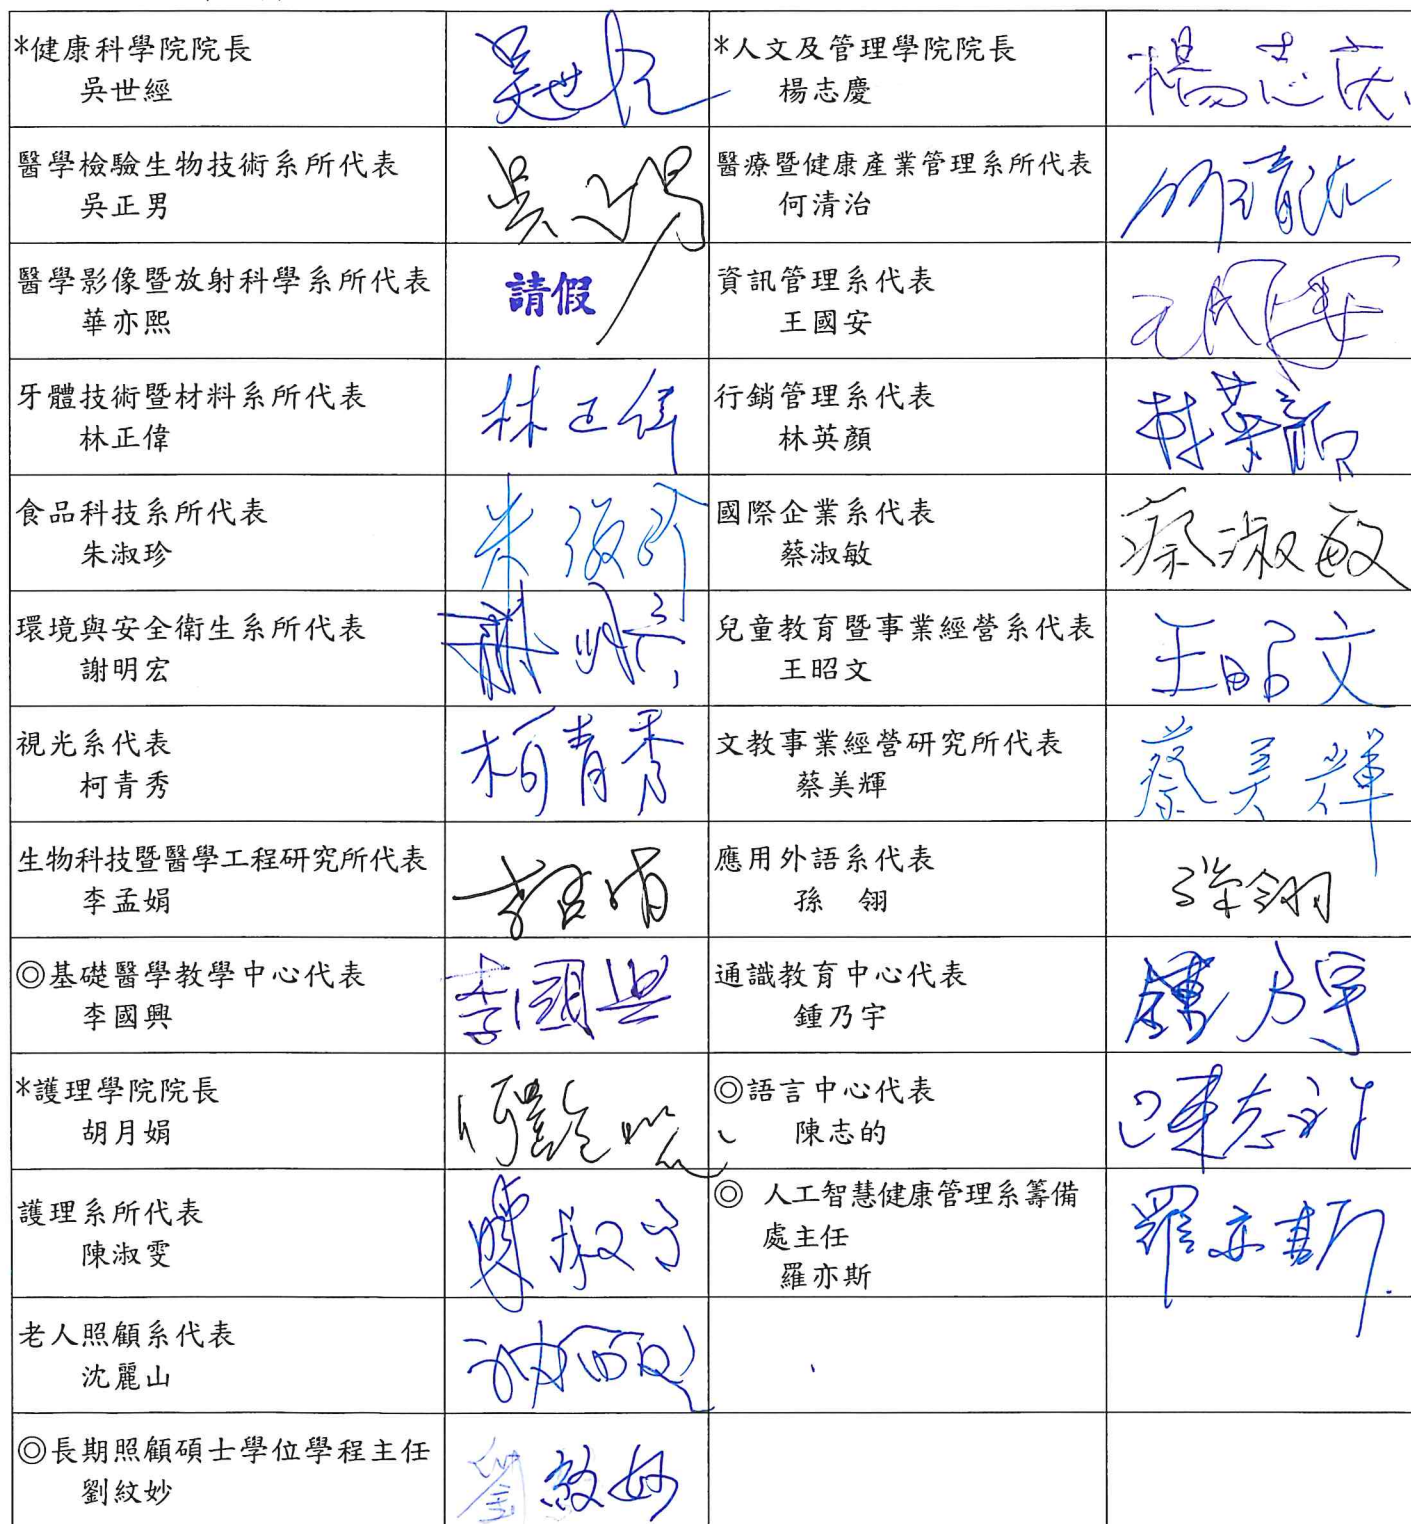 *健康科學院院長
吳世經
吳世经
*人文及管理學院院長
楊志慶
楊志慶
醫學檢驗生物技術系所代表
吳正男
吳正男
醫療暨健康產業管理系所代表
何清治
何清治
醫學影像暨放射科學系所代表
華亦熙
請假
資訊管理系代表
王國安
牙體技術暨材料系所代表
林正偉
林正偉
行銷管理系代表
林英顏
林英顏
食品科技系所代表
朱淑珍
朱淑珍
國際企業系代表
蔡淑敏
蔡淑敏
環境與安全衛生系所代表
謝明宏
謝明宏
兒童教育暨事業經營系代表
王昭文
王昭文
視光系代表
柯青秀
柯青秀
文教事業經營研究所代表
蔡美輝
蔡美輝
生物科技暨醫學工程研究所代表
李孟娟
應用外語系代表
孫　翎
孫翎
◎基礎醫學教學中心代表
李國興
李國興
通識教育中心代表
鍾乃宇
鍾乃宇
*護理學院院長
胡月娟
◎語言中心代表
陳志的
陳志的
護理系所代表
陳淑雯
陳淑雯
◎ 人工智慧健康管理系籌備
處主任
羅亦斯
羅亦斯
老人照顧系代表
沈麗山
◎長期照顧碩士學位學程主任
劉紋妙
劉紋妙